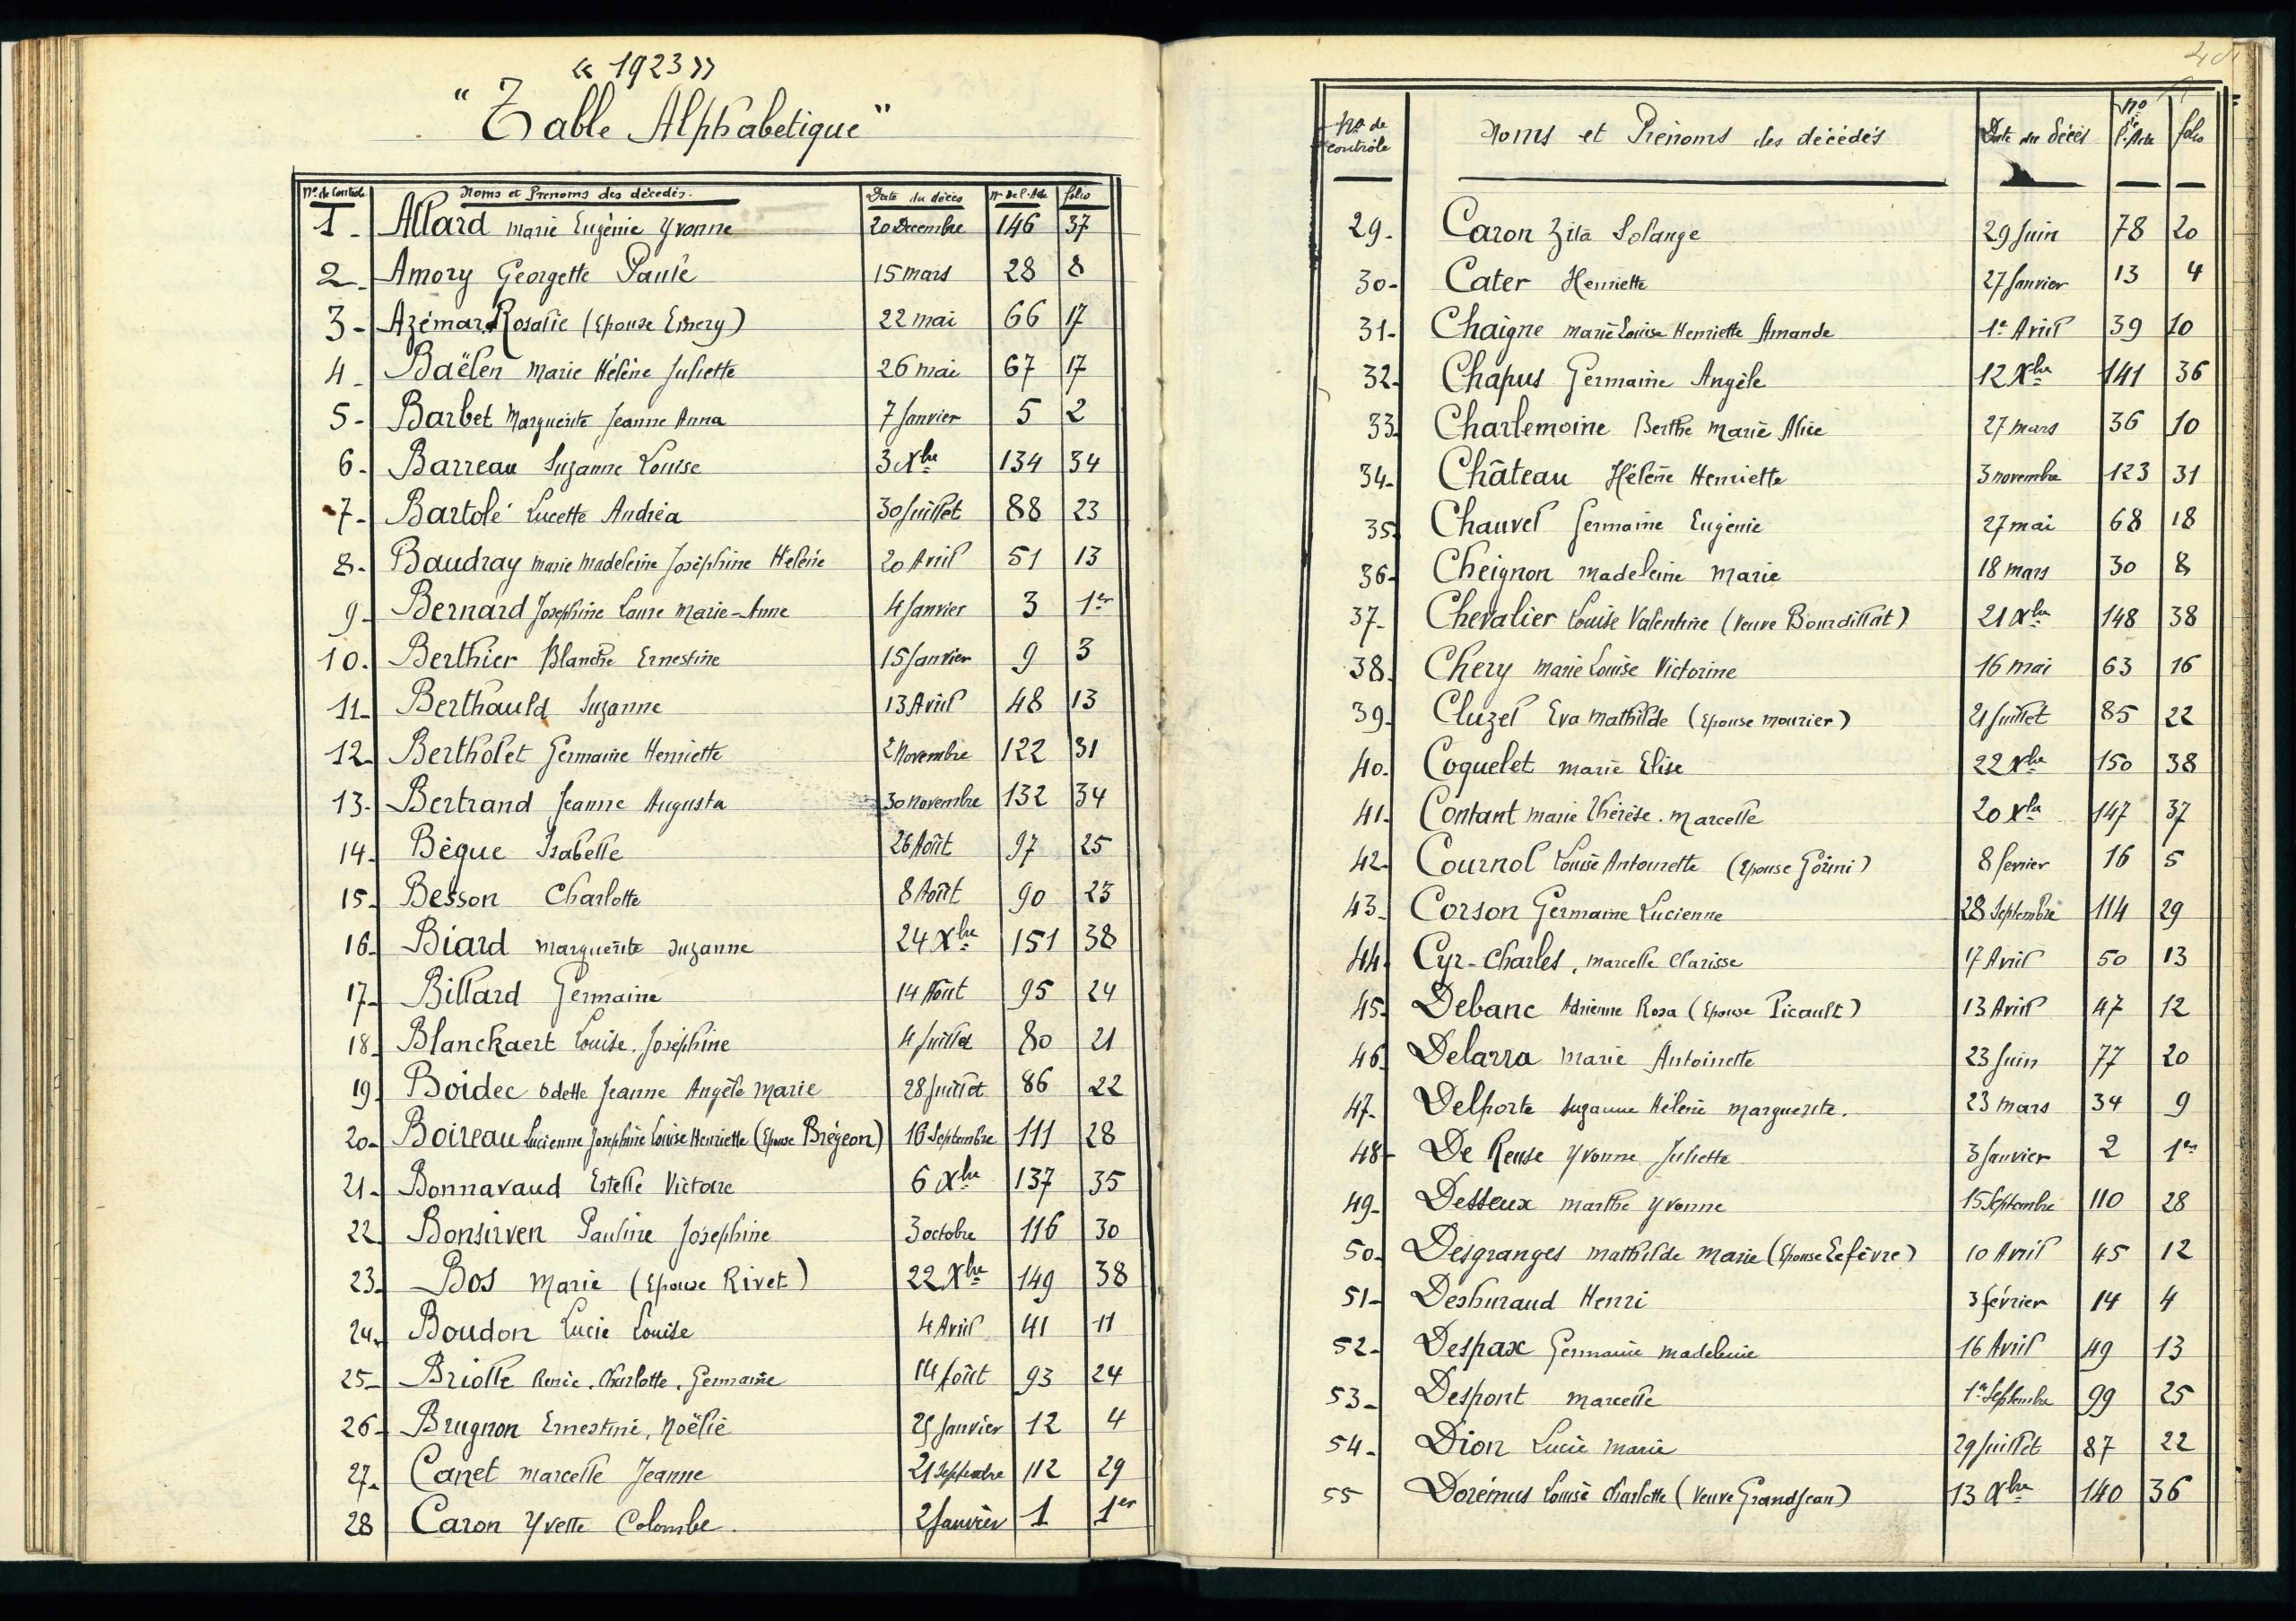 « 1923 »
"Table Alphabetique"
Nº de Controle Noms et Prenoms des décedés. Date du décès Nº De l'Acte folio
1 - Allard Marie Eugénie Yvonne 20 Decembre 146 37
2 - Amory Georgette Paule 15 mars 28 8
3 - Azémar Rosalie (Epouse Emery) 22 mai 66 17
4 - Baëlen Marie Hélène Juliette 26 mai 67 17
5 - Barbet Marguerite Jeanne Anna 7 Janvier 5 2
6 - Barreau Suzanne Louise 3 Xbre 134 34
7 - Bartolé Lucette Andréa 30 Juillet 88 23
8 - Baudray Marie Madeleine Joséphine Hélène 20 Avril 51 13
9 - Bernard Josephine Laure Marie-Anne 4 Janvier 3 1er
10 - Berthier Blanche Ernestine 15 Janvier 9 3
11 - Berthauld Suzanne 13 Avril 48 13
12 - Bertholet Germaine Henriette 2 Novembre 122 31
13 - Bertrand Jeanne Augusta 30 novembre 132 34
14 - Bègue Isabelle 26 Août 97 25
15 - Besson Charlotte 8 Août 90 23
16 - Biard Marguerite Suzanne 24 Xbre 151 38
17 - Billard Germaine 14 Août 95 24
18 - Blanckaert Louise. Joséphine 4 Juillet 80 21
19 - Boidec Odette Jeanne Angèle Marie 28 Juillet 86 22
20 - Boireau Lucienne Josephine Louise Henriette (Epouse Brégeon) 16 Septembre 111 28
21 - Bonnavaud Estelle Victoire 6 Xbre 137 35
22 - Bonsirven Pauline Joséphine 3 octobre 116 30
23 - Bos Marie (Epouse Rivet) 22 Xbre 149 38
24 - Boudon Lucie Louise 4 Avril 41 11
25 - Briolle Renée. Charlotte. Germaine 14 Août 93 24
26 - Brugnon Ernestine, Noëlie 25 Janvier 12 4
27 - Canet Marcelle Jeanne 21 Septembre 112 29
28 Caron Yvette Colombe. 2 Janvier 1 1er
Nº de contrôle Noms et Prénoms des décédés Date du Décès Nº de l'Acte folio
29 - Caron Zita Solange 29 Juin 78 20
30 - Cater Henriette 27 Janvier 13 4
31 - Chaigne Marie Louise Henriette Amande 1e Avril 39 10
32 - Chapus Germaine Angèle 12 Xbre 141 36
33 - Charlemoine Berthe Marie Alice 27 mars 36 10
34 - Château Hélène Henriette 3 novembre 123 31
35 - Chauvel Germaine Eugénie 27 mai 68 18
36 - Cheignon Madeleine Marie 18 mars 30 8
37 - Chevalier Louise Valentine (Veuve Bourdillat) 21 Xbre 148 38
38 - Chery Marie Louise Victorine 16 mai 63 16
39 - Cluzel Eva Mathilde (Epouse Mourier) 21 Juillet 85 22
40 - Coquelet Marie Elise 22 Xbre 150 38
41 - Contant Marie Thérèse. Marcelle 20 Xbre 147 37
42 - Cournol Louise Antoinette (Epouse Gorini) 8 fevrier 16 5
43 - Corson Germaine Lucienne 28 Septembre 114 29
44 - Cyr-Charles, Marcelle Clarisse 17 Avril 50 13
45 - Debanc Adrienne Rosa (Epouse Picault) 13 Avril 47 12
46 - Delarra Marie Antoinette 23 Juin 77 20
47 - Delporte Suzanne Hélène Marguerite. 23 mars 34 9
48 - De Reuse Yvonne Juliette 3 Janvier 2 1er
49 - Desseux Marthe Yvonne 15 Septembre 110 28
50 - Desgranges Mathilde Marie (Epouse Lefèvre) 10 Avril 45 12
51 - Desburaud Henri 3 février 14 4
52 - Despax Germaine Madeleine 16 Avril 49 13
53 - Despont Marcelle 1er Septembre 99 25
54 - Dion Lucie Marie 29 Juillet 87 22
55 Dorémus Louise Charlotte (Veuve GrandJean) 13 Xbre 140 36